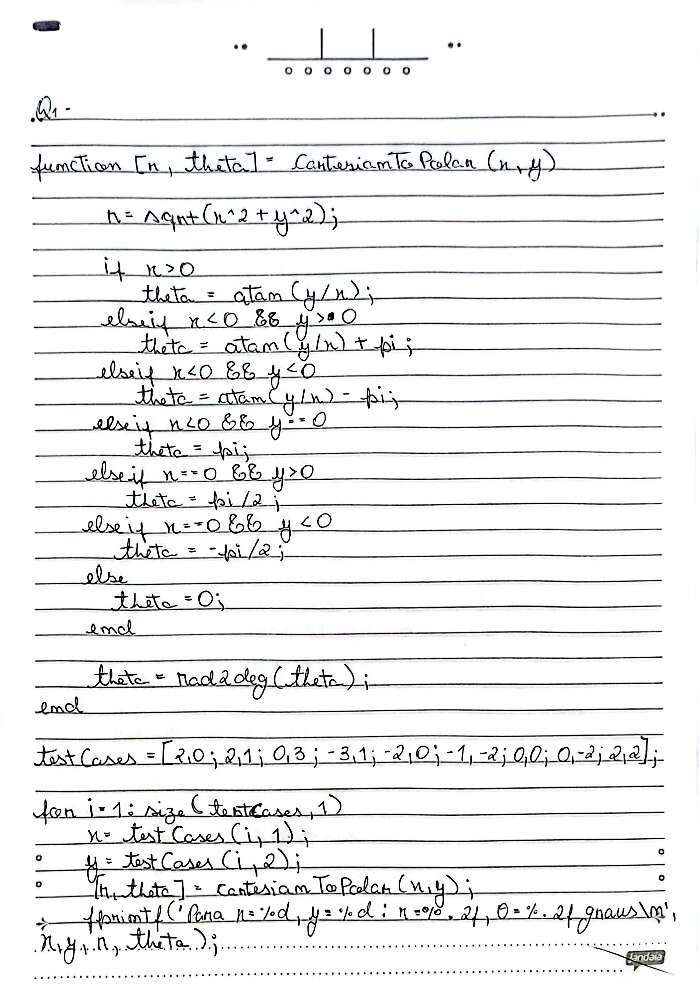 Q1 -
function [r, theta] = CartesianToPolar (x, y)
r = sqrt(x^2 + y^2);
if x > 0
theta = atan (y/x);
elseif x < 0 && y > 0
theta = atan(y/x) + pi;
elseif x<0 && y<0
theta = atan(y/x) - pi;
elseif x<0 && y==0
theta = pi;
elseif x==0 && y>0
theta = pi/2;
elseif x==0 && y<0
theta = -pi/2;
else
theta = 0;
end
theta = rad2deg(theta);
end
testCases = [2,0; 2,1; 0,3; -3,1; -2,0; -1,-2; 0,0; 0,-2; 2,2];
for i=1:size(testCases,1)
x= testCases(i,1);
y= testCases(i,2);
[r, theta] = cartesianToPolar(x,y);
fprintf('Para x=%d, y=%d: r=%.2f, θ=%.2f graus\n',
x,y, r, theta);
landaia